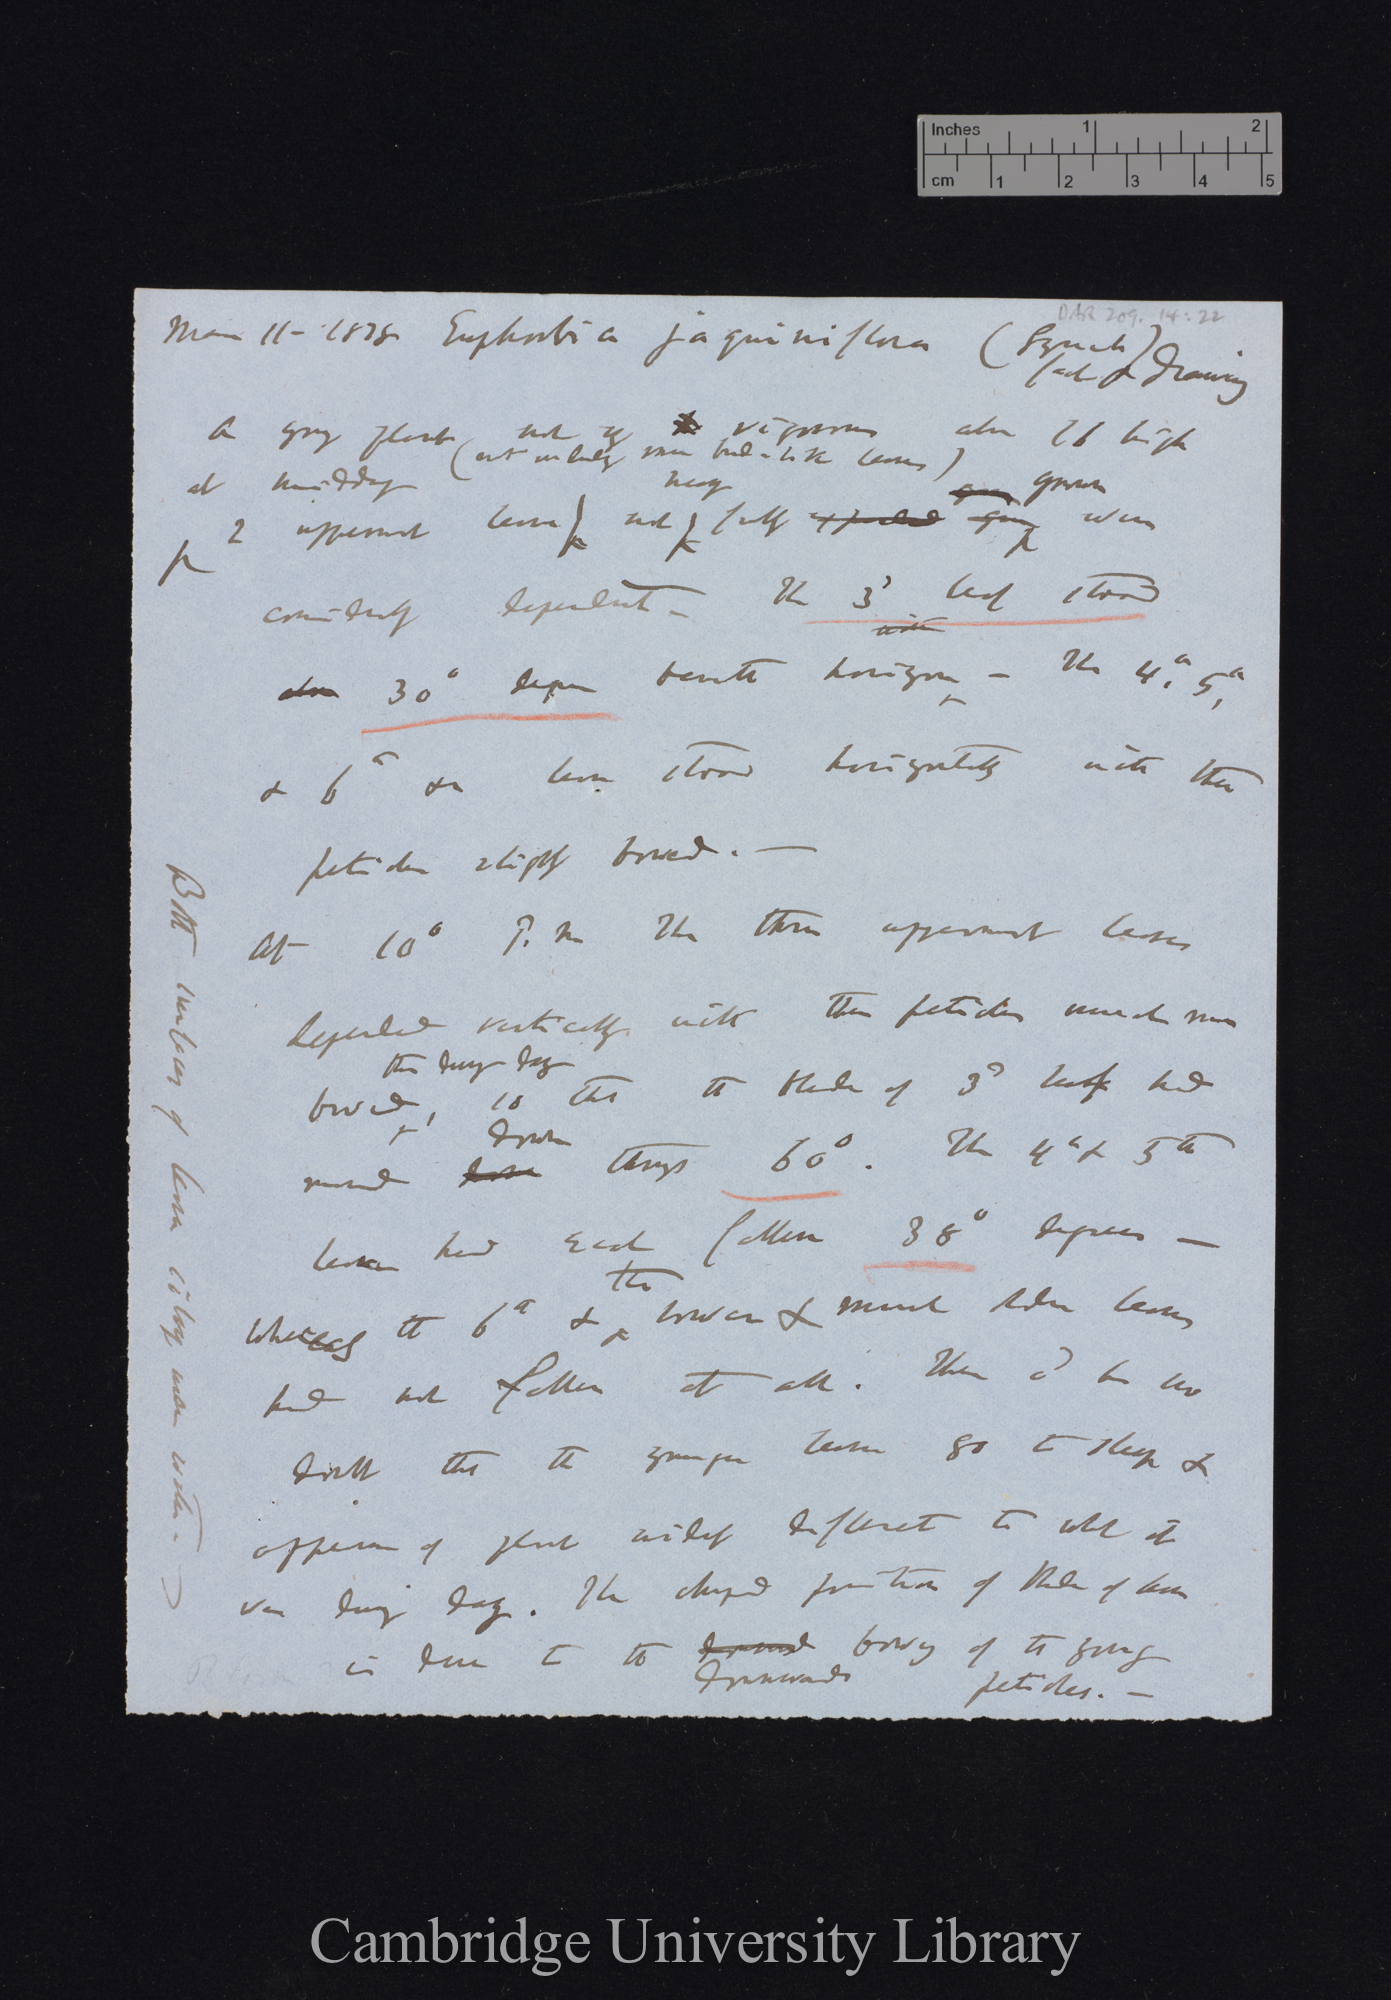 Inches 1 2
cm 1 2 3 4 5
DAR 209. 14:22
Mar 11 - 1878 Euphorbia jaquiniflora (Lynch)
Drawing
A young plant not vigorous 16 high
(not including some bud-like leaves)
at midday
2 uppermost leaves not fully expanded grown were
nearly
considerably dependent – The 3d leaf stood
with
about 30° degrees beneath horizon – The 4th, 5th,
& 6th &c leaves stood horizontally with their
petioles slightly bowed. —
At 10° P. m The three uppermost leaves
depended vertically with their petioles much more
than during day
bowed, so that the blade of 3d leaf had
down
moved through 60°. The 4th & 5th
leaves had each fallen 38° degrees —
the
whereas the 6th & lower & much older leaves
had not fallen at all. There can be no
doubt that the younger leaves go to sleep &
appearance of plant widely different to what it
was during day. The changed position of blade of leaves
is due to the bowing of the young
downwards petioles. —
Both surfaces of leaves
Cambridge University Library